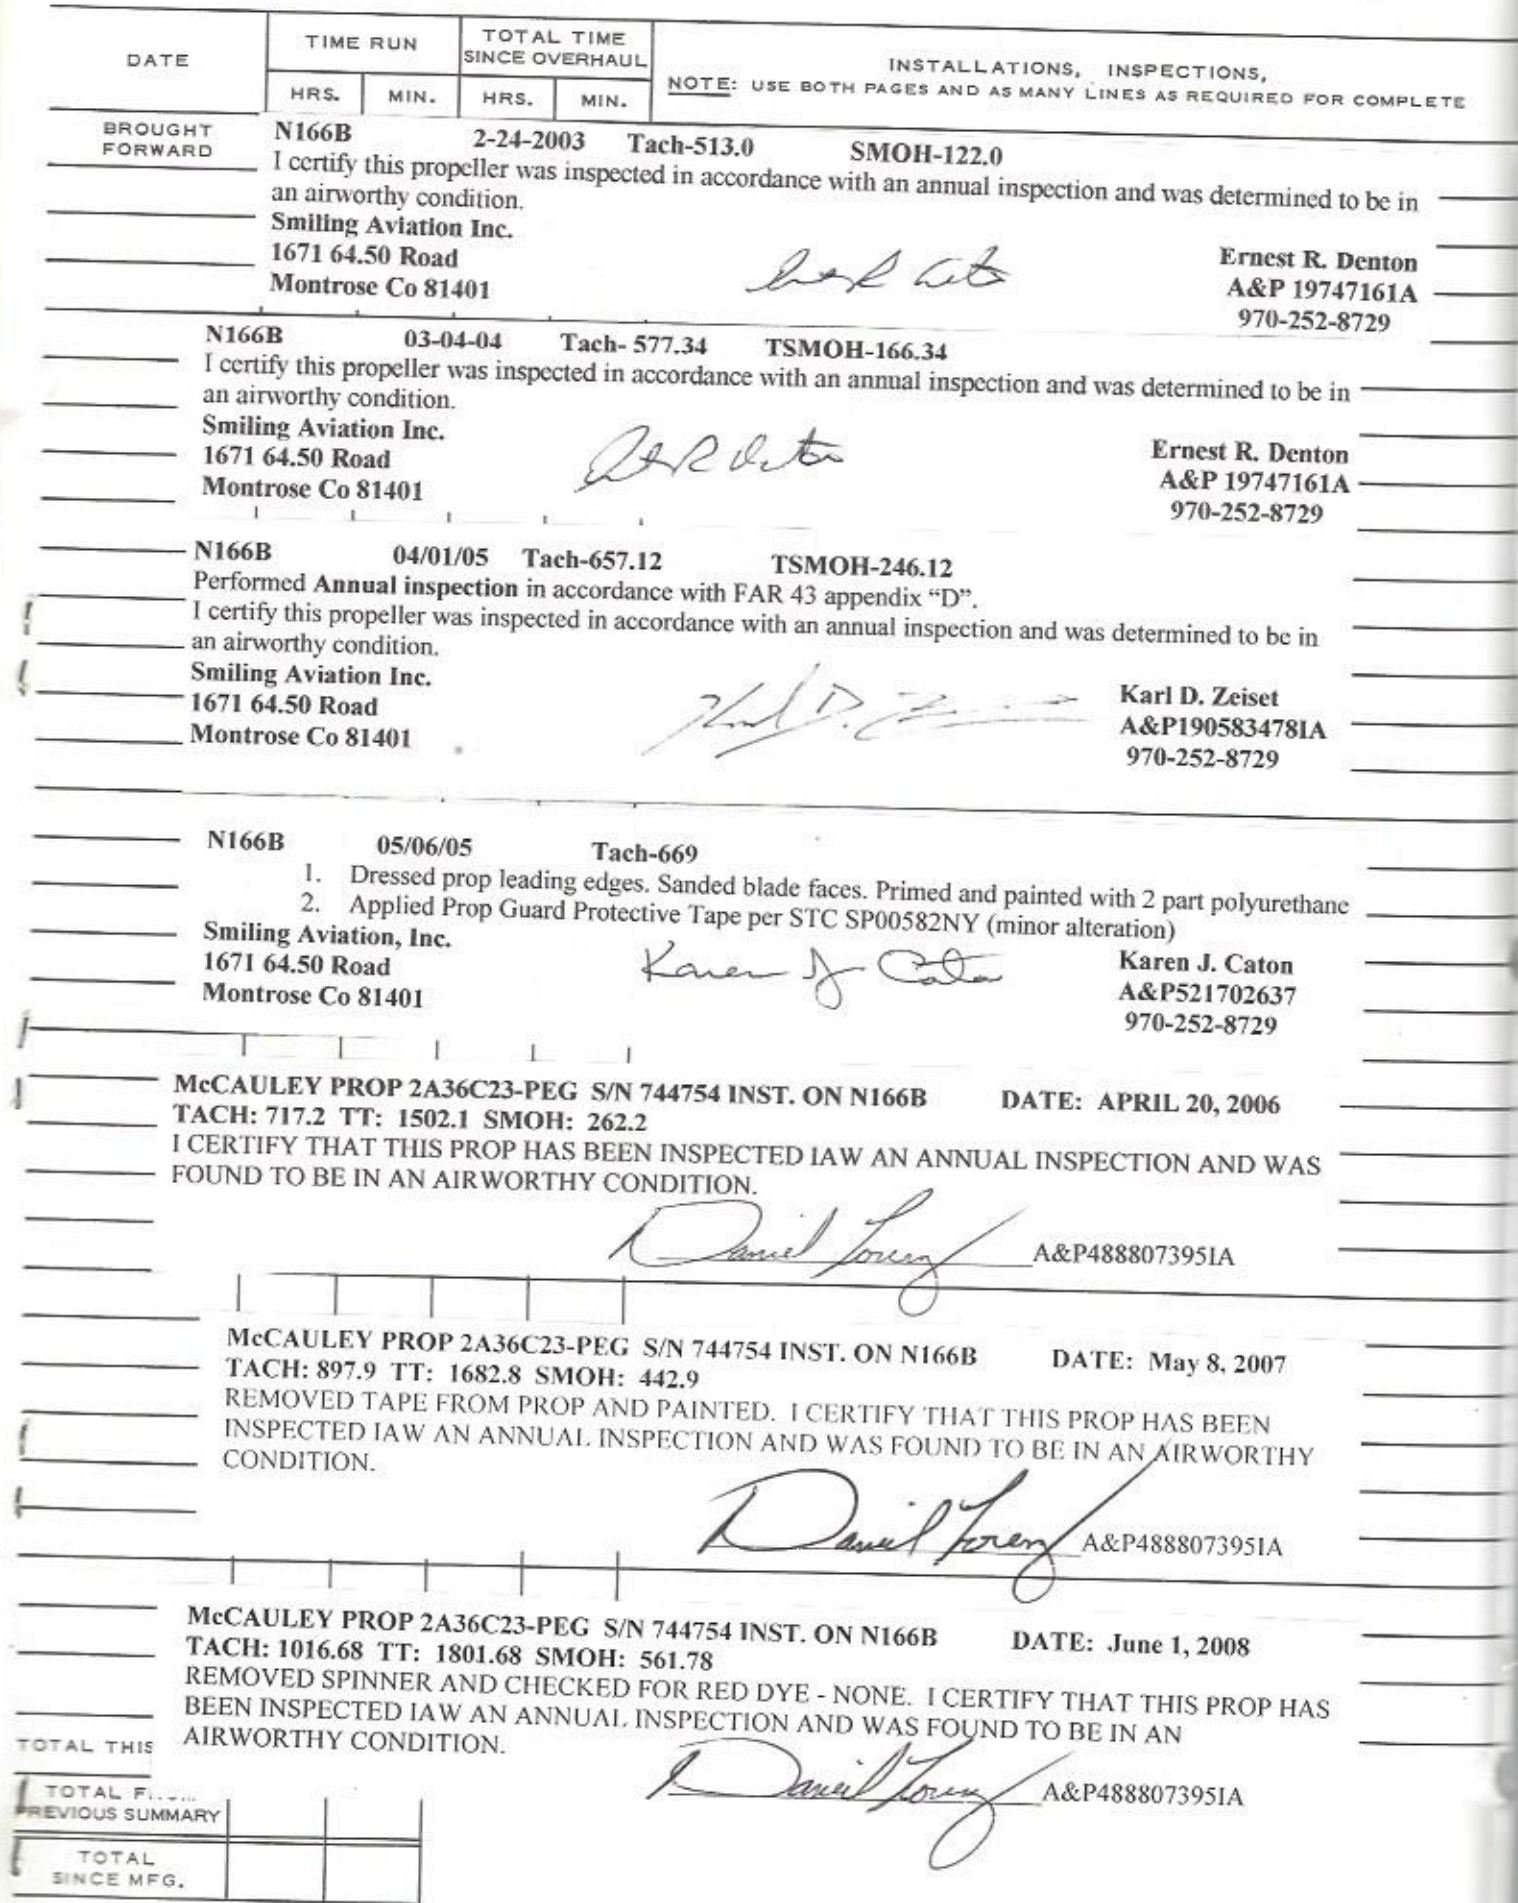 DATE
TIME RUN
TOTAL TIME
SINCE OVERHAUL
HRS. MIN. HRS. MIN.
INSTALLATIONS, INSPECTIONS,
NOTE: USE BOTH PAGES AND AS MANY LINES AS REQUIRED FOR COMPLETE
BROUGHT
FORWARD
N166B 2-24-2003 Tach-513.0 SMOH-122.0
I certify this propeller was inspected in accordance with an annual inspection and was determined to be in
an airworthy condition.
Smiling Aviation Inc.
1671 64.50 Road
Montrose Co 81401
Ernest R. Denton
A&P 19747161A
970-252-8729
N166B 03-04-04 Tach- 577.34 TSMOH-166.34
I certify this propeller was inspected in accordance with an annual inspection and was determined to be in
an airworthy condition.
Smiling Aviation Inc.
1671 64.50 Road
Montrose Co 81401
Ernest R. Denton
A&P 19747161A
970-252-8729
N166B 04/01/05 Tach-657.12 TSMOH-246.12
Performed Annual inspection in accordance with FAR 43 appendix “D”.
I certify this propeller was inspected in accordance with an annual inspection and was determined to be in
an airworthy condition.
Smiling Aviation Inc.
1671 64.50 Road
Montrose Co 81401
Karl D. Zeiset
A&P190583478IA
970-252-8729
N166B 05/06/05 Tach-669
1. Dressed prop leading edges. Sanded blade faces. Primed and painted with 2 part polyurethane
2. Applied Prop Guard Protective Tape per STC SP00582NY (minor alteration)
Smiling Aviation, Inc.
1671 64.50 Road
Montrose Co 81401
Karen J. Caton
Karen J. Caton
A&P521702637
970-252-8729
McCAULEY PROP 2A36C23-PEG S/N 744754 INST. ON N166B DATE: APRIL 20, 2006
TACH: 717.2 TT: 1502.1 SMOH: 262.2
I CERTIFY THAT THIS PROP HAS BEEN INSPECTED IAW AN ANNUAL INSPECTION AND WAS
FOUND TO BE IN AN AIRWORTHY CONDITION.
Daniel Lorenz A&P488807395IA
McCAULEY PROP 2A36C23-PEG S/N 744754 INST. ON N166B DATE: May 8, 2007
TACH: 897.9 TT: 1682.8 SMOH: 442.9
REMOVED TAPE FROM PROP AND PAINTED. I CERTIFY THAT THIS PROP HAS BEEN
INSPECTED IAW AN ANNUAL INSPECTION AND WAS FOUND TO BE IN AN AIRWORTHY
CONDITION.
Daniel Lorenz A&P488807395IA
McCAULEY PROP 2A36C23-PEG S/N 744754 INST. ON N166B DATE: June 1, 2008
TACH: 1016.68 TT: 1801.68 SMOH: 561.78
REMOVED SPINNER AND CHECKED FOR RED DYE - NONE. I CERTIFY THAT THIS PROP HAS
BEEN INSPECTED IAW AN ANNUAL INSPECTION AND WAS FOUND TO BE IN AN
AIRWORTHY CONDITION.
Daniel Lorenz A&P488807395IA
TOTAL THIS
TOTAL
PREVIOUS SUMMARY
TOTAL
SINCE MFG.